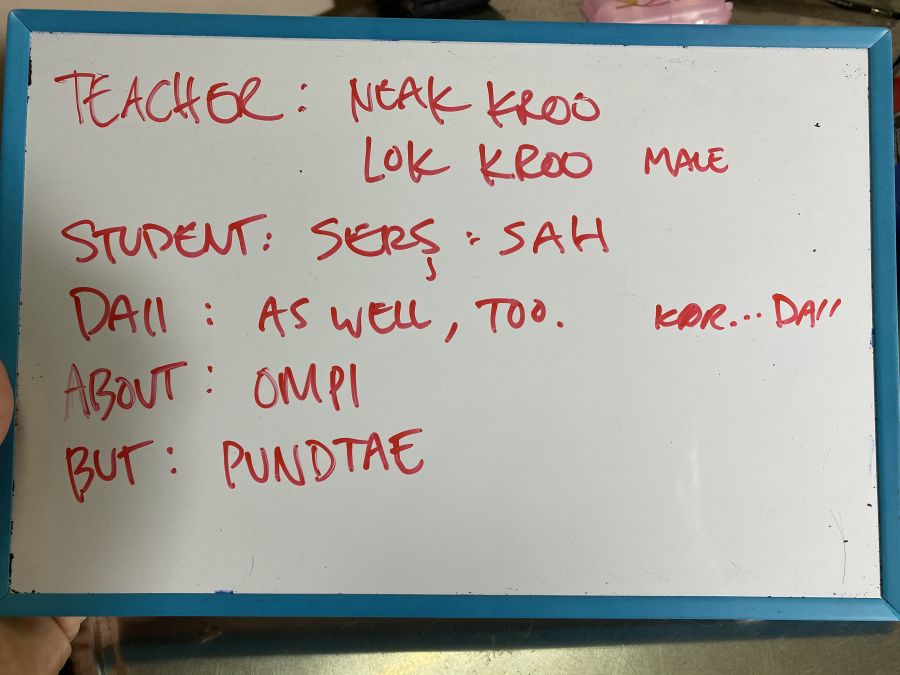 TEACHER: NEAK KROO
LOK KROO MALE
STUDENT: SERS : SAH
DAII : AS WELL, TOO. KOR...DAII
ABOUT: OMPI
BUT: PUNDTAE